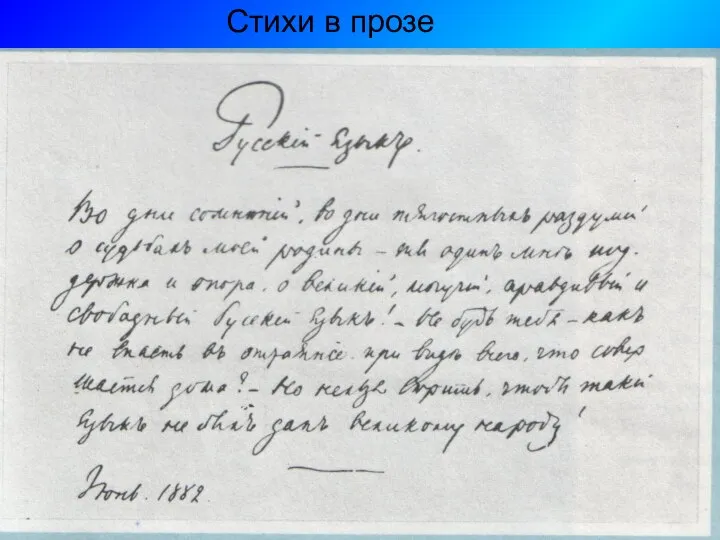 Стихи в прозе
Русскій Языкъ.
Во дни сомнѣній, во дни тягостныхъ раздумій
о судьбахъ моей родины – ты одинъ мнѣ под-
держка и опора, о великій, могучій, правдивый и
свободный Русскій Языкъ! – Не будь тебя – какъ
не впасть въ отчаяніе при видѣ всего, что совер
шается дома? – Но нельзя вѣрить, чтобы такой
Языкъ не былъ данъ великому народу!
Июнь. 1882.